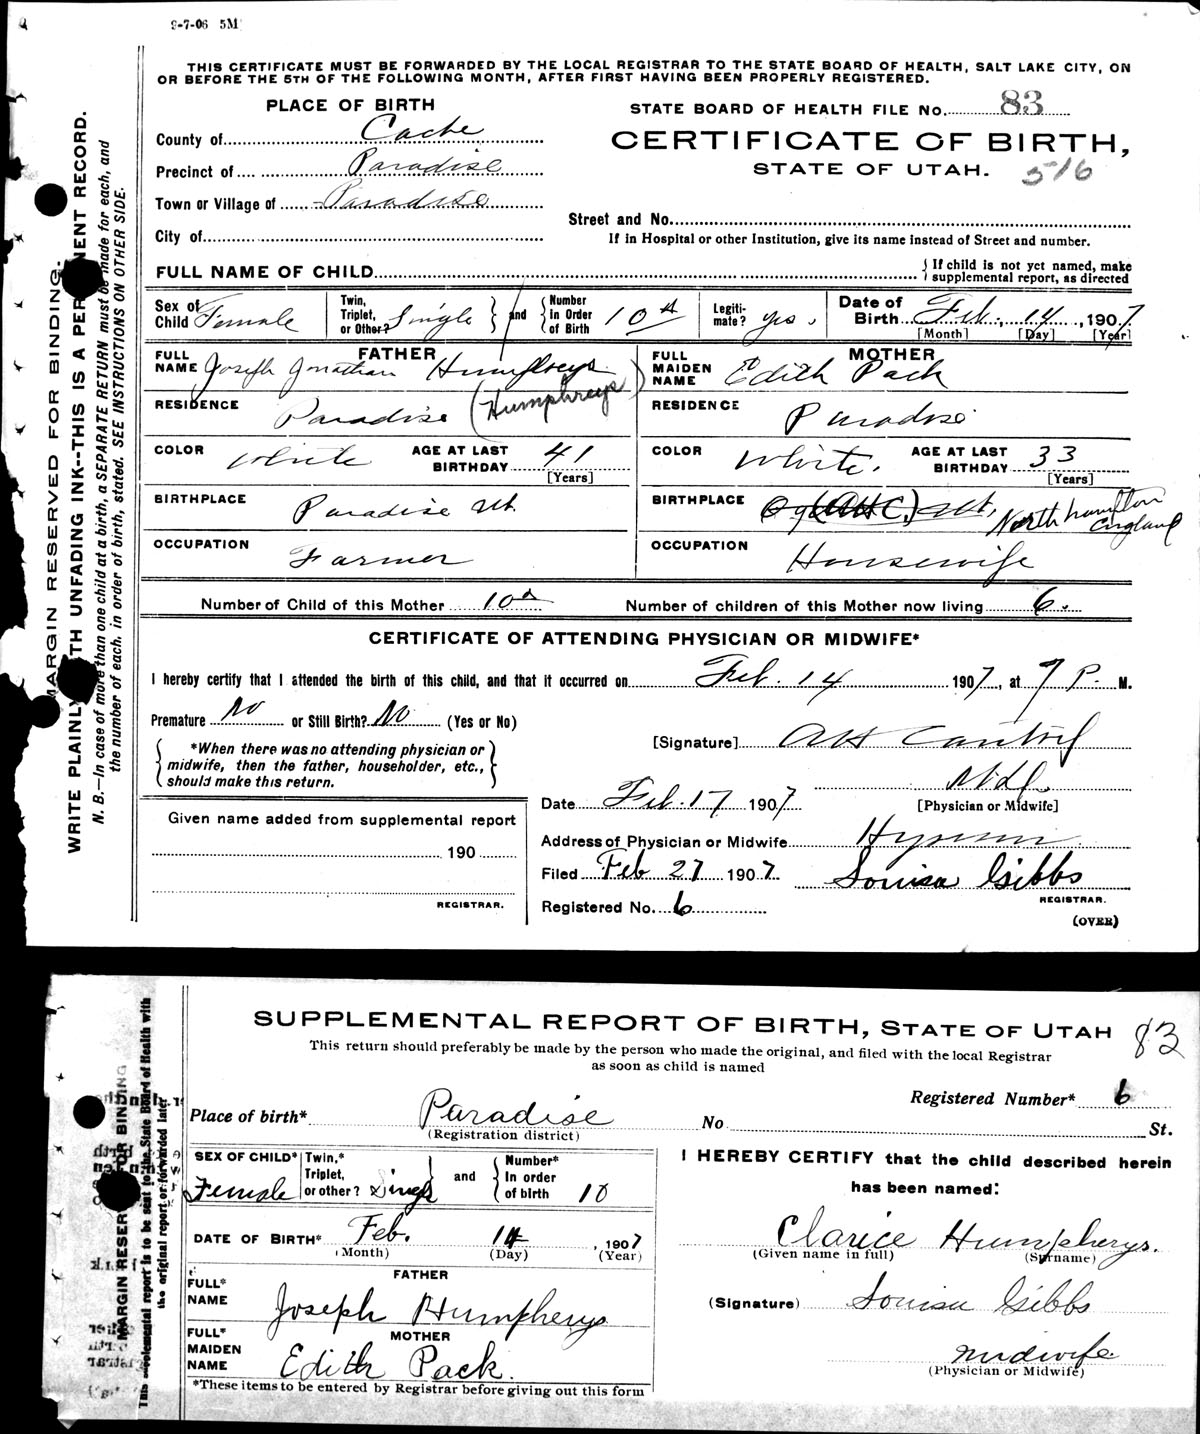 9-7-06 5M
THIS CERTIFICATE MUST BE FORWARDED BY THE LOCAL REGISTRAR TO THE STATE BOARD OF HEALTH, SALT LAKE CITY, ON
OR BEFORE THE 5TH OF THE FOLLOWING MONTH, AFTER FIRST HAVING BEEN PROPERLY REGISTERED.
PLACE OF BIRTH
STATE BOARD OF HEALTH FILE No. 83
County of Cache
CERTIFICATE OF BIRTH,
Precinct of Paradise
STATE OF UTAH. 516
Town or Village of Paradise
Street and No.
City of
If in Hospital or other Institution, give its name instead of Street and number.
FULL NAME OF CHILD { If child is not yet named, make supplemental report, as directed
Sex of Child Female Twin, Triplet, or Other? Single } and { Number In Order of Birth 10th Legitimate? yes. Date of Birth Feb. 14, 1907
[Month] [Day] [Year]
FATHER MOTHER
FULL NAME Joseph Jonathan Humphreys FULL MAIDEN NAME Edith Pack
RESIDENCE Paradise (Humphreys) RESIDENCE Paradise
COLOR White AGE AT LAST BIRTHDAY 41 [Years] COLOR White. AGE AT LAST BIRTHDAY 33 [Years]
BIRTHPLACE Paradise Ut. BIRTHPLACE Ut, North hamilton England
OCCUPATION Farmer OCCUPATION Housewife
Number of Child of this Mother 10th Number of children of this Mother now living 6.
CERTIFICATE OF ATTENDING PHYSICIAN OR MIDWIFE*
I hereby certify that I attended the birth of this child, and that it occurred on Feb. 14 1907, at 7 P. M.
Premature No or Still Birth? No (Yes or No)
[Signature] A H Cantril
*When there was no attending physician or
midwife, then the father, householder, etc.,
should make this return.
Date Feb. 17 1907
[Physician or Midwife]
Given name added from supplemental report
190
REGISTRAR.
Address of Physician or Midwife Hyrum
Filed Feb 27 1907. Louisa Gibbs
REGISTRAR.
Registered No. 6
(OVER)
MARGIN RESERVED FOR BINDING.
WRITE PLAINLY WITH UNFADING INK--THIS IS A PERMANENT RECORD.
N. B.—In case of more than one child at a birth, a SEPARATE RETURN must be made for each, and
the number of each, in order of birth, stated. SEE INSTRUCTIONS ON OTHER SIDE.
SUPPLEMENTAL REPORT OF BIRTH, STATE OF UTAH 83
This return should preferably be made by the person who made the original, and filed with the local Registrar
as soon as child is named
Registered Number* 6
Place of birth* Paradise No St.
(Registration district)
SEX OF CHILD* Female Twin,* Triplet, or other? Single } and { Number* In order of birth 10
I HEREBY CERTIFY that the child described herein
has been named:
DATE OF BIRTH* Feb. 14, 1907
(Month) (Day) (Year)
Clarice Humpherys.
(Given name in full) (Surname)
FATHER
FULL* NAME Joseph Humpherys
(Signature) Louisa Gibbs
MOTHER
FULL* MAIDEN NAME Edith Pack.
midwife.
(Physician or Midwife)
*These items to be entered by Registrar before giving out this form
MARGIN RESERVED FOR BINDING
This supplemental report is to be sent to the State Board of Health with
the original report or forwarded later